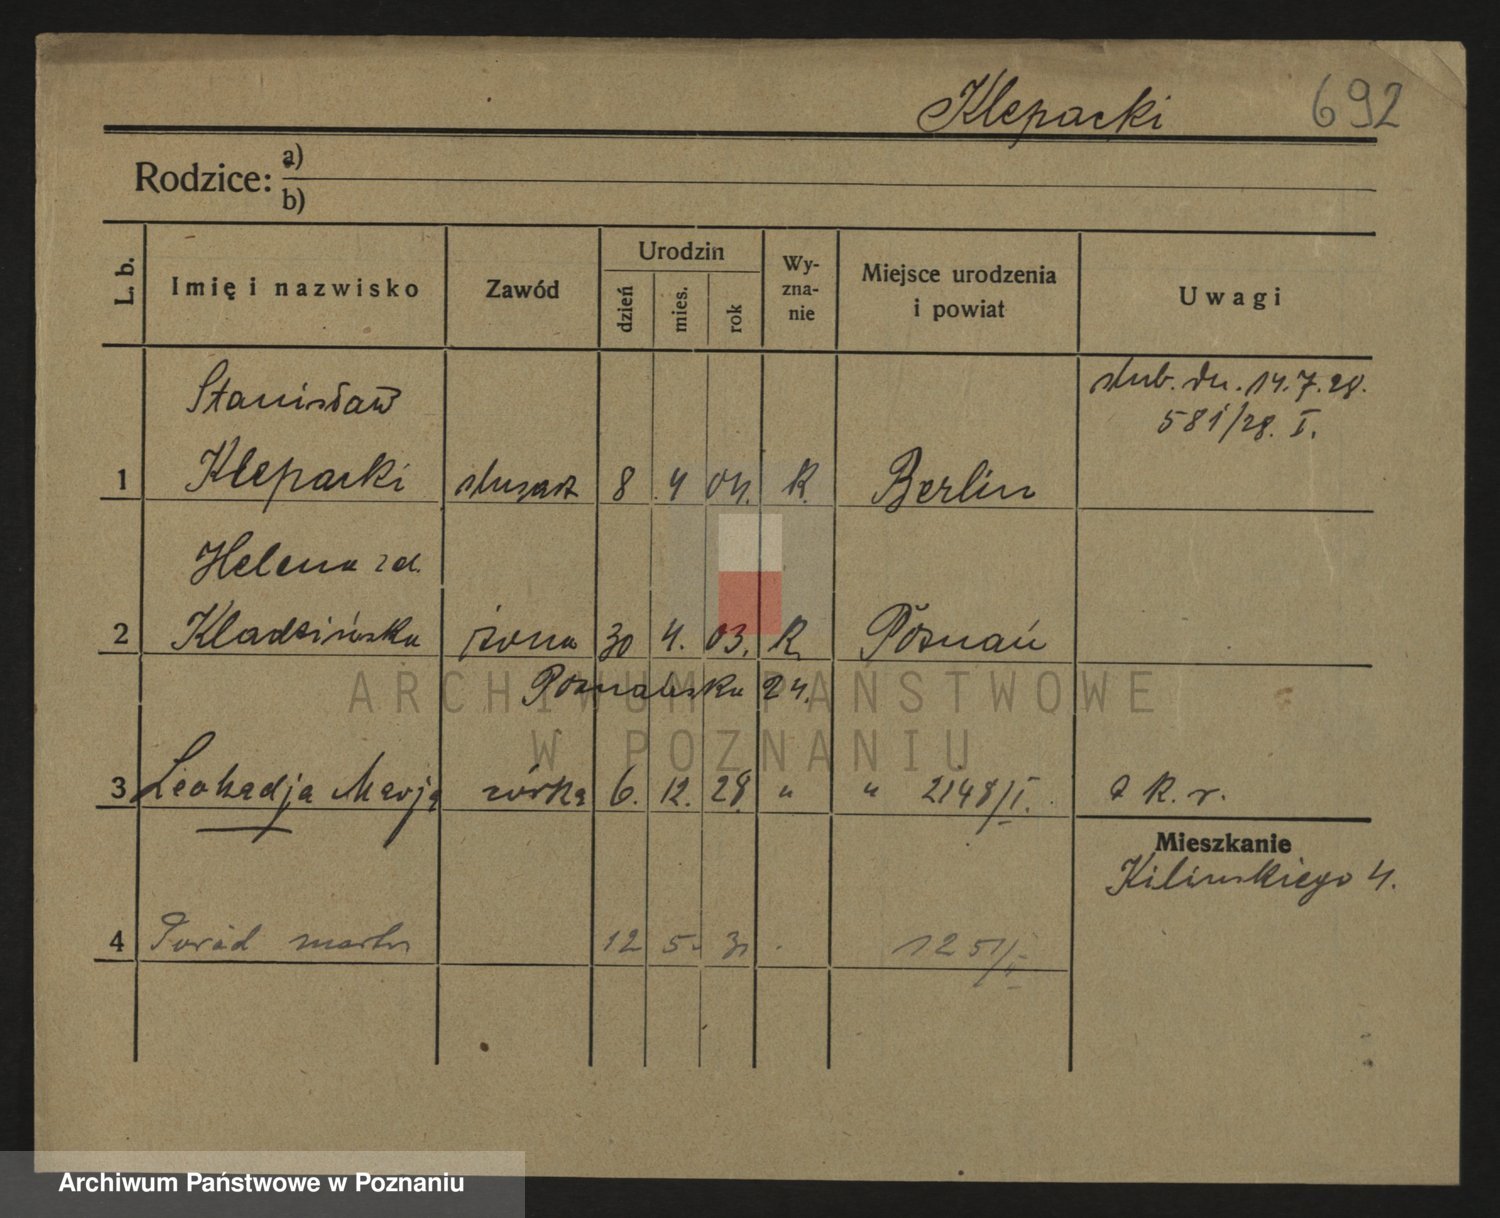 Klepacki 692
Rodzice: a)
b)
L. b. Imię i nazwisko Zawód Urodzin dzień mies. rok Wy-zna-nie Miejsce urodzenia i powiat Uwagi
Stanisław ślub. dn. 14.7.28.
581/28. I.
1 Klepacki ślusarz 8 4 04. R. Berlin
Helena zd.
2 Kladzińska żona 30 4. 03. R. Poznań
Poznańska 24.
ARCHIWUM PAŃSTWOWE
W POZNANIU
3 Leokadja Marja córka 6. 12. 28. " " 2148/I. R. r.
Mieszkanie
Kilińskiego 4.
4 Poród martw 12 5. 31 1251/II
Archiwum Państwowe w Poznaniu